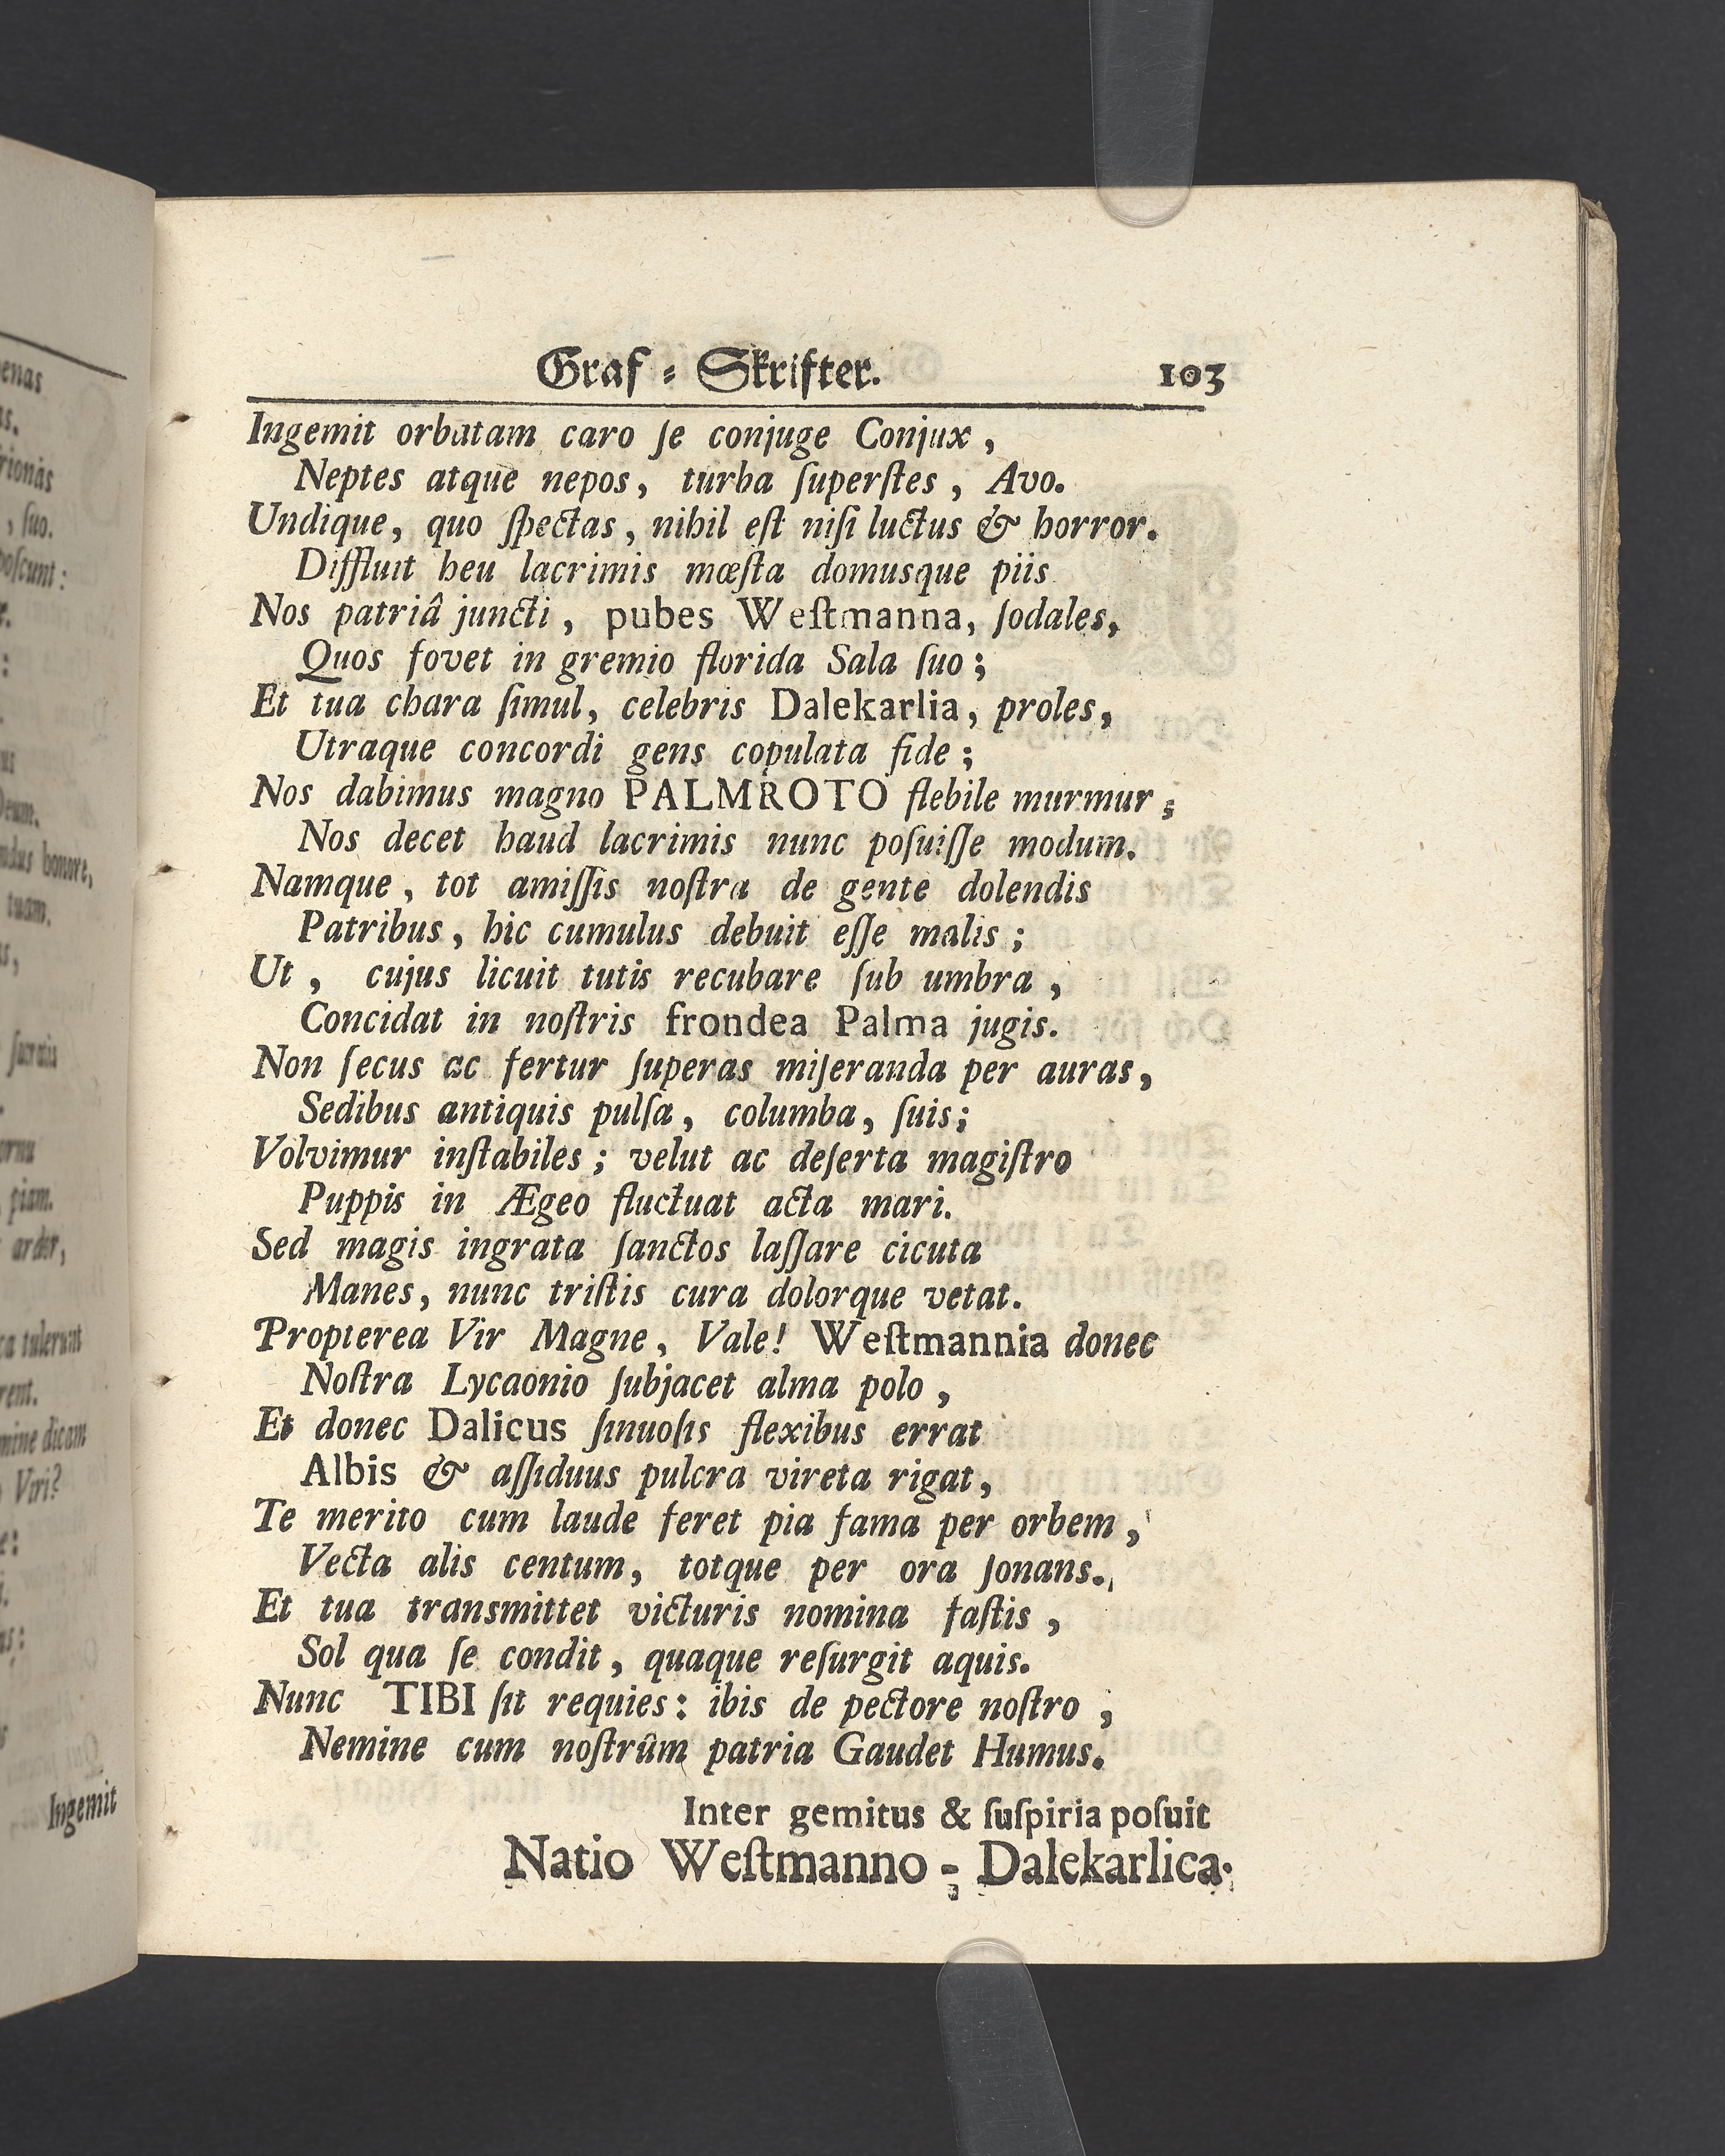 Graf = Skrifter. 103
Ingemit orbatam caro ſe conjuge Conjux,
Neptes atque nepos, turba ſuperſtes, Avo.
Undique, quo ſpectas, nihil eſt niſi luctus & horror.
Diffluit heu lacrimis mœſta domusque piis
Nos patriâ juncti, pubes Weſtmanna, ſodales,
Quos fovet in gremio florida Sala ſuo;
Et tua chara ſimul, celebris Dalekarlia, proles,
Utraque concordi gens copulata fide;
Nos dabimus magno PALMROTO flebile murmur;
Nos decet haud lacrimis nunc poſuiſſe modum.
Namque, tot amiſſis noſtra de gente dolendis
Patribus, hic cumulus debuit eſſe malis;
Ut, cujus licuit tutis recubare ſub umbra,
Concidat in noſtris frondea Palma jugis.
Non ſecus ac fertur ſuperas miſeranda per auras,
Sedibus antiquis pulſa, columba, ſuis;
Volvimur inſtabiles; velut ac deſerta magiſtro
Puppis in Ægeo fluctuat acta mari.
Sed magis ingrata ſanctos laſſare cicuta
Manes, nunc triſtis cura dolorque vetat.
Propterea Vir Magne, Vale! Weſtmannia donec
Noſtra Lycaonio ſubjacet alma polo,
Et donec Dalicus ſinuoſis flexibus errat
Albis & aſſiduus pulcra vireta rigat,
Te merito cum laude feret pia fama per orbem,
Vecta alis centum, totque per ora ſonans.
Et tua transmittet victuris nomina faſtis,
Sol qua ſe condit, quaque reſurgit aquis.
Nunc TIBI ſit requies: ibis de pectore noſtro,
Nemine cum noſtrûm patria Gaudet Humus.
Inter gemitus & ſuſpiria poſuit
Natio Weſtmanno = Dalekarlica.
enas
rionâs
, ſuo.
poſcunt:
Deum.
honore,
tuam.
piam.
tulerunt
dicam
Viri?
Ingemit